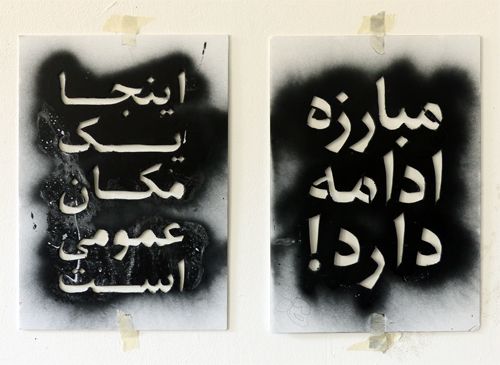 اینجا
یک
مکان
عمومی
است
مبارزه
ادامه
دارد!